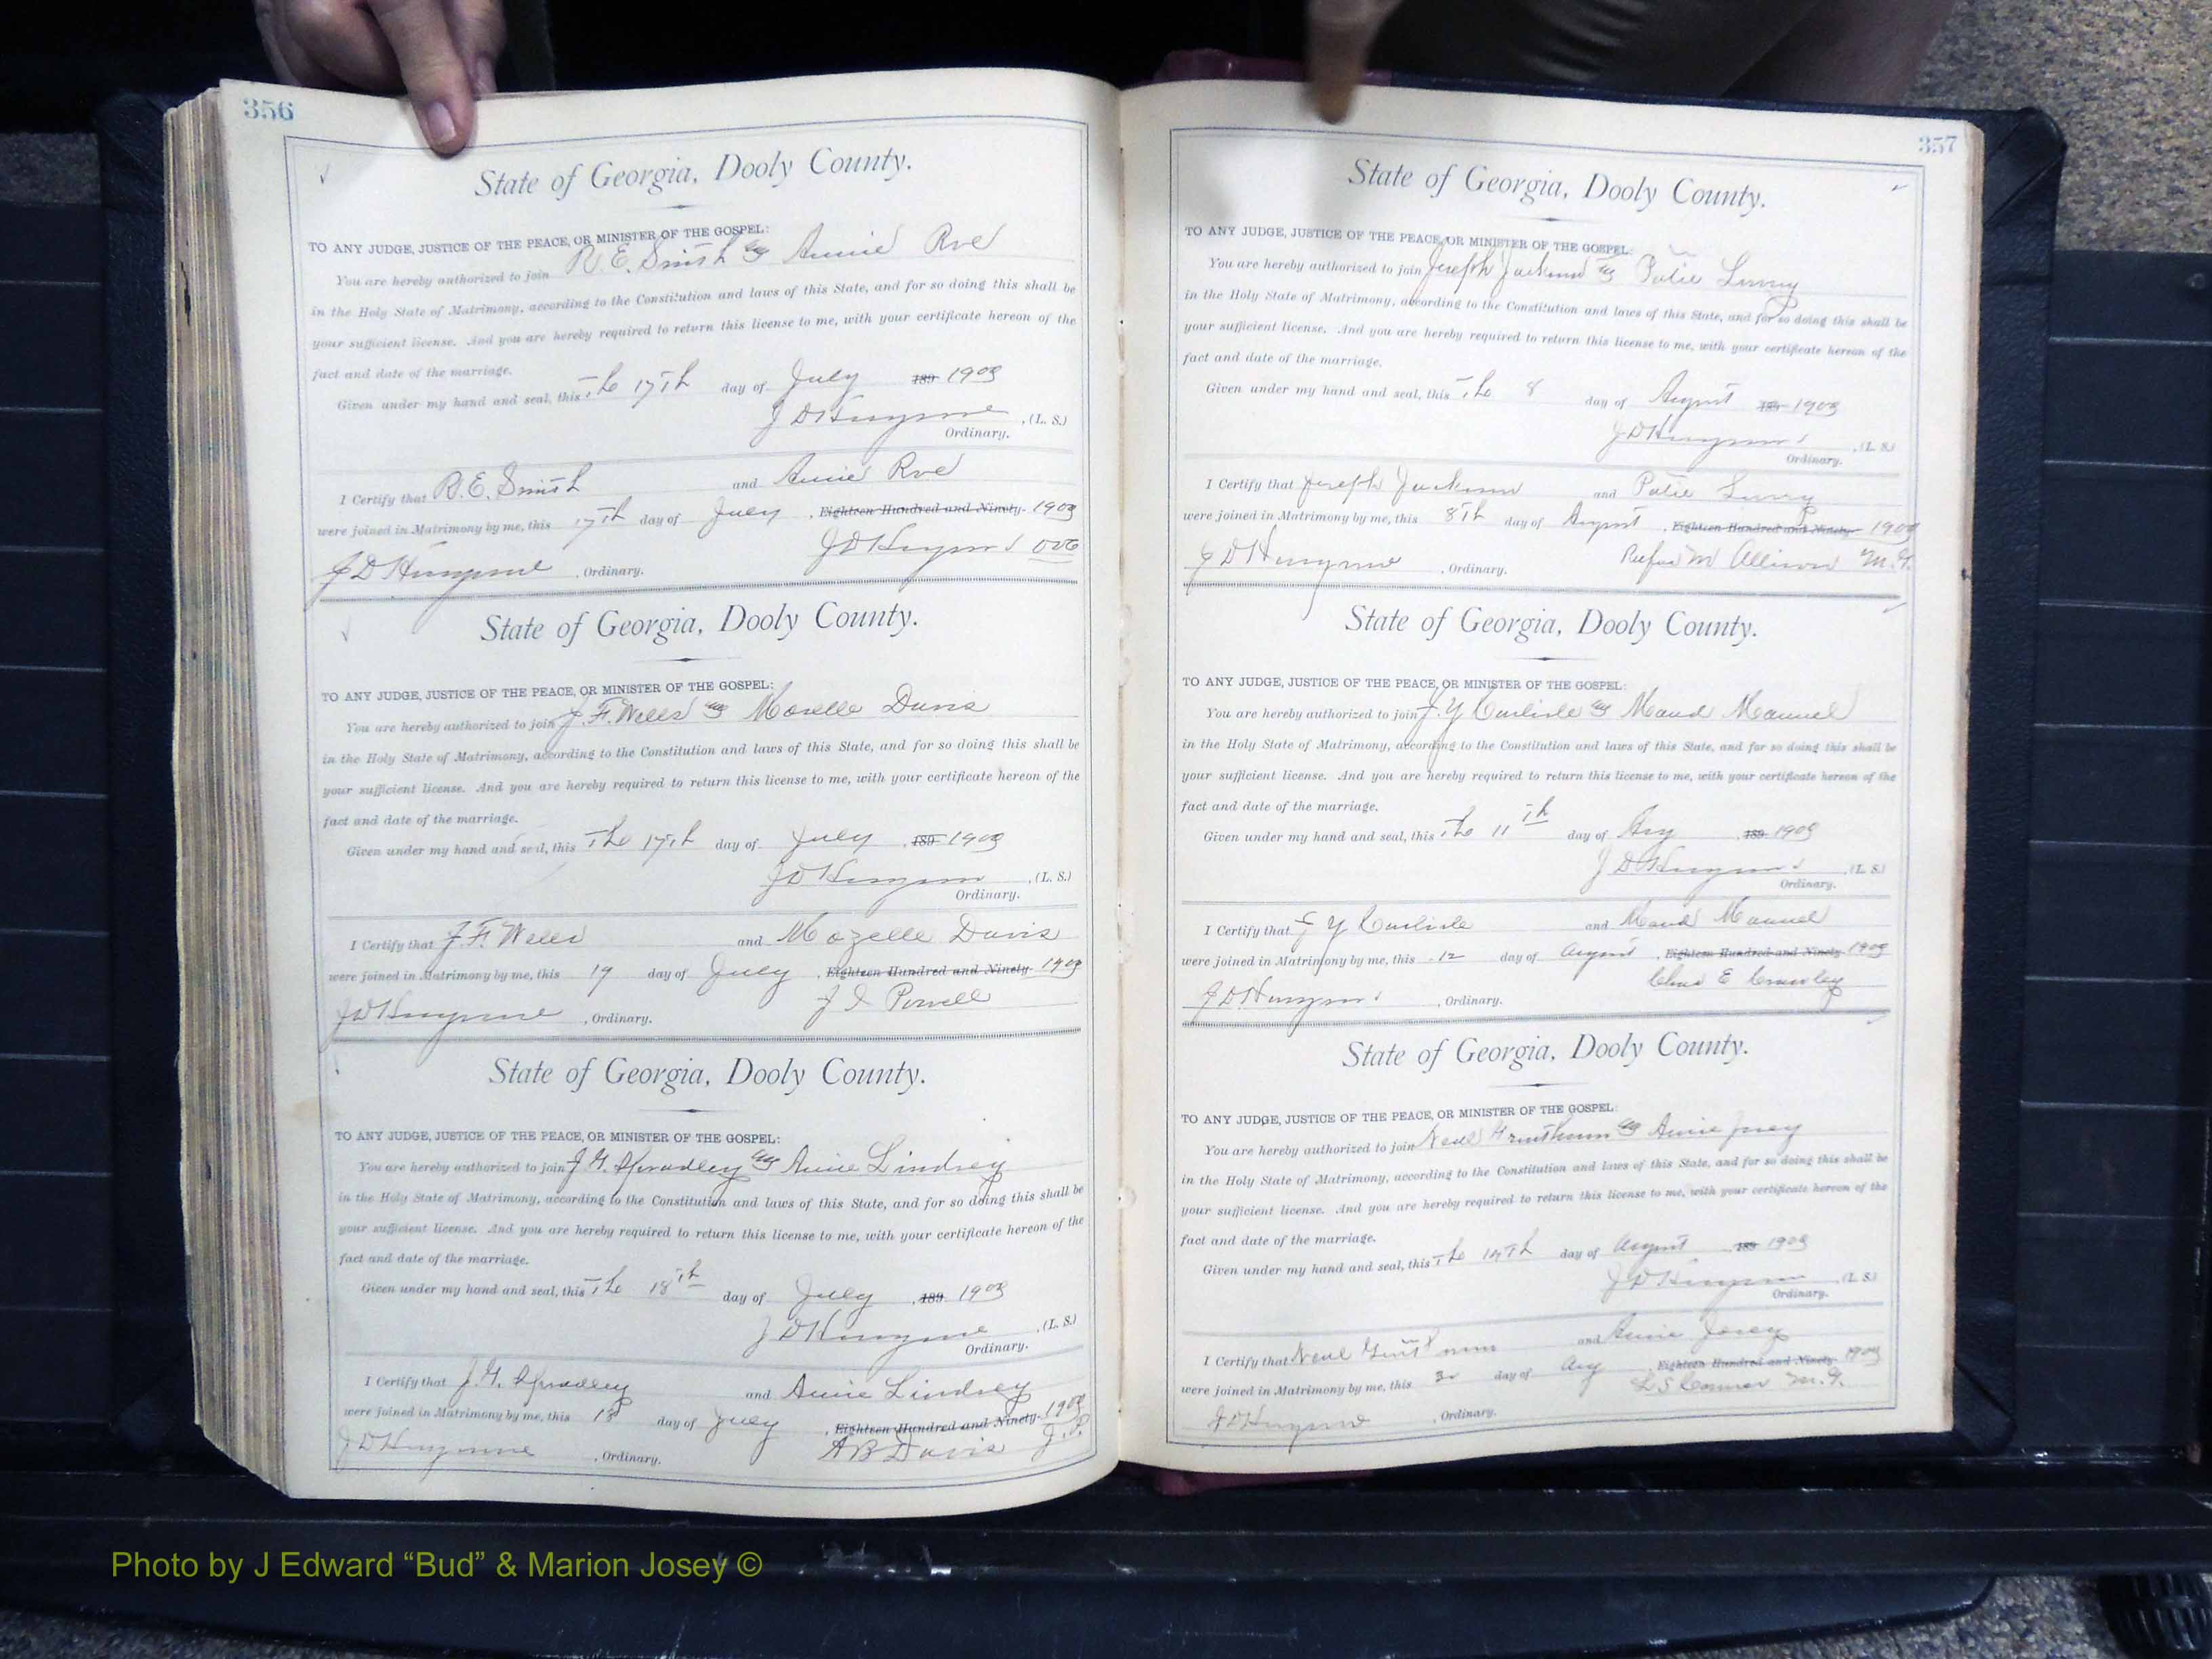 356
State of Georgia, Dooly County.
TO ANY JUDGE, JUSTICE OF THE PEACE, OR MINISTER OF THE GOSPEL:
You are hereby authorized to join R. E. Smith & Annie Roe
in the Holy State of Matrimony, according to the Constitution and laws of this State, and for so doing this shall be
your sufficient license. And you are hereby required to return this license to me, with your certificate hereon of the
fact and date of the marriage.
Given under my hand and seal, this The 17th day of July 189 1903
, (L. S.)
Ordinary.
I Certify that R. E. Smith and Annie Roe
were joined in Matrimony by me, this 17th day of July , Eighteen Hundred and Ninety- 1903
, Ordinary.
State of Georgia, Dooly County.
TO ANY JUDGE, JUSTICE OF THE PEACE, OR MINISTER OF THE GOSPEL:
You are hereby authorized to join J. F. Wells & Mozelle Davis
in the Holy State of Matrimony, according to the Constitution and laws of this State, and for so doing this shall be
your sufficient license. And you are hereby required to return this license to me, with your certificate hereon of the
fact and date of the marriage.
Given under my hand and seal, this The 17th day of July , 189 1903
, (L. S.)
Ordinary.
I Certify that J. F. Wells and Mozelle Davis
were joined in Matrimony by me, this 19 day of July , Eighteen Hundred and Ninety- 1903
J I Powell
, Ordinary.
State of Georgia, Dooly County.
TO ANY JUDGE, JUSTICE OF THE PEACE, OR MINISTER OF THE GOSPEL:
You are hereby authorized to join J. G. Spradley & Annie Lindsey
in the Holy State of Matrimony, according to the Constitution and laws of this State, and for so doing this shall be
your sufficient license. And you are hereby required to return this license to me, with your certificate hereon of the
fact and date of the marriage.
Given under my hand and seal, this The 18th day of July , 189 1903
, (L. S.)
Ordinary.
I Certify that J. G. Spradley and Annie Lindsey
were joined in Matrimony by me, this 18 day of July , Eighteen Hundred and Ninety- 1903
A B Davis J. P.
, Ordinary.
357
State of Georgia, Dooly County.
TO ANY JUDGE, JUSTICE OF THE PEACE, OR MINISTER OF THE GOSPEL:
You are hereby authorized to join Joseph Jackson &
in the Holy State of Matrimony, according to the Constitution and laws of this State, and for so doing this shall be
your sufficient license. And you are hereby required to return this license to me, with your certificate hereon of the
fact and date of the marriage.
Given under my hand and seal, this The 8 day of August 189 1903
, (L. S.)
Ordinary.
I Certify that Joseph Jackson and
were joined in Matrimony by me, this 8th day of August , Eighteen Hundred and Ninety- 1903
Rufus M Allison M. G.
, Ordinary.
State of Georgia, Dooly County.
TO ANY JUDGE, JUSTICE OF THE PEACE, OR MINISTER OF THE GOSPEL:
You are hereby authorized to join J. Y Carlisle & Maud Maunel
in the Holy State of Matrimony, according to the Constitution and laws of this State, and for so doing this shall be
your sufficient license. And you are hereby required to return this license to me, with your certificate hereon of the
fact and date of the marriage.
Given under my hand and seal, this The 11th day of Aug , 189 1903
, (L. S.)
Ordinary.
I Certify that J Y Carlisle and Maud Maunel
were joined in Matrimony by me, this 12 day of August , Eighteen Hundred and Ninety- 1903
Chas E Crawley
, Ordinary.
State of Georgia, Dooly County.
TO ANY JUDGE, JUSTICE OF THE PEACE, OR MINISTER OF THE GOSPEL:
You are hereby authorized to join Neal & Annie Josey
in the Holy State of Matrimony, according to the Constitution and laws of this State, and for so doing this shall be
your sufficient license. And you are hereby required to return this license to me, with your certificate hereon of the
fact and date of the marriage.
Given under my hand and seal, this The 14th day of August , 189 1903
, (L. S.)
Ordinary.
I Certify that Neal and Annie Josey
were joined in Matrimony by me, this day of Aug , Eighteen Hundred and Ninety- 1903
M. G.
, Ordinary.
Photo by J Edward “Bud” & Marion Josey ©